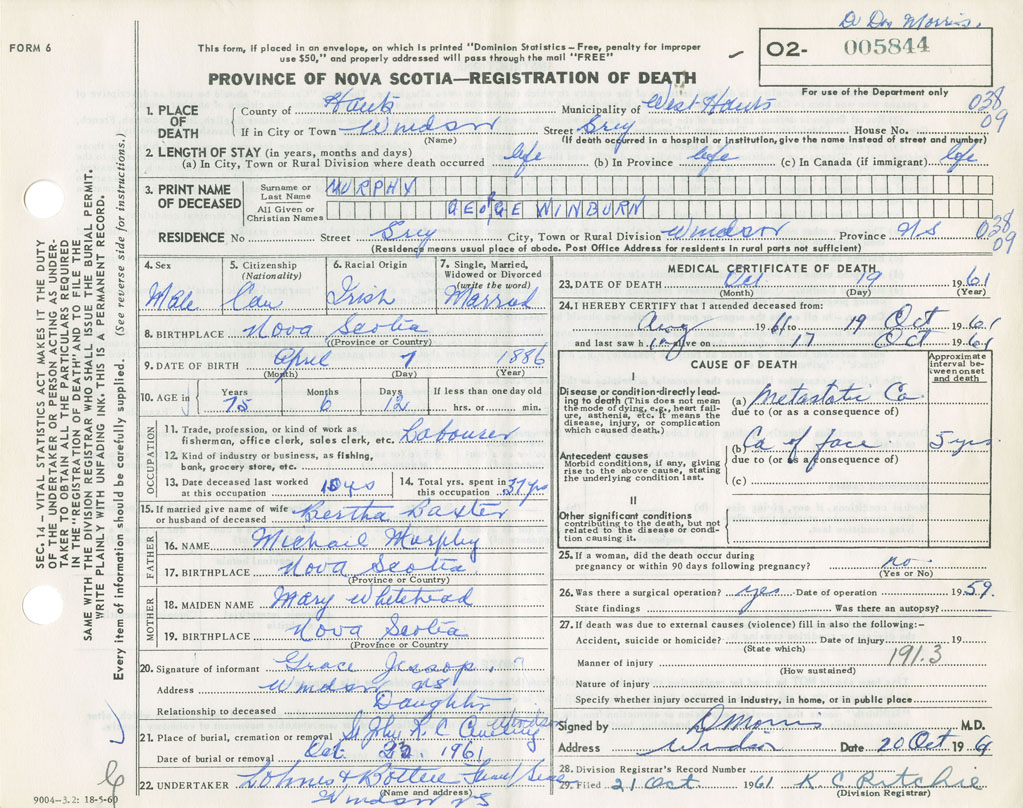 Dr Don Morris.
FORM 6
This form, if placed in an envelope, on which is printed "Dominion Statistics—Free, penalty for improper
use $50," and properly addressed will pass through the mail "FREE"
O2- 005844
PROVINCE OF NOVA SCOTIA—REGISTRATION OF DEATH
For use of the Department only
1. PLACE OF DEATH
County of Hants Municipality of West Hants 038
If in City or Town Windsor Street Grey House No. 09
(Name) (If death occurred in a hospital or institution, give the name instead of street and number)
2. LENGTH OF STAY (in years, months and days)
(a) In City, Town or Rural Division where death occurred life (b) In Province life (c) In Canada (if immigrant) life
3. PRINT NAME OF DECEASED
Surname or Last Name MURPHY
All Given or Christian Names GEORGE WINBURN
RESIDENCE No Street Grey City, Town or Rural Division Windsor Province NS 038
09
(Residence means usual place of abode. Post Office Address for residents in rural parts not sufficient)
4. Sex
Male
5. Citizenship
(Nationality)
Can
6. Racial Origin
Irish
7. Single, Married,
Widowed or Divorced
(write the word)
Married
8. BIRTHPLACE Nova Scotia
(Province or Country)
9. DATE OF BIRTH April 7 1886
(Month) (Day) (Year)
10. AGE in
Years Months Days If less than one day old
75 6 12 hrs. or min.
OCCUPATION
11. Trade, profession, or kind of work as
fisherman, office clerk, sales clerk, etc. Labourer
12. Kind of industry or business, as fishing,
bank, grocery store, etc.
13. Date deceased last worked
at this occupation 10 yrs
14. Total yrs. spent in
this occupation 37 yrs
15. If married give name of wife
or husband of deceased Bertha Baxter
FATHER
16. NAME Michael Murphy
17. BIRTHPLACE Nova Scotia
(Province or Country)
MOTHER
18. MAIDEN NAME Mary Whitehead
19. BIRTHPLACE Nova Scotia
(Province or Country
20. Signature of informant Grace Jessop
Address Windsor NS
Relationship to deceased Daughter
21. Place of burial, cremation or removal St John R.C. Cemetery Windsor
Date of burial or removal Oct. 22, 1961
22. UNDERTAKER Lohnes &
(Name and address)
Windsor NS
9004—3.2: 18-5-60
MEDICAL CERTIFICATE OF DEATH
23. DATE OF DEATH Oct 19 1961
(Month) (Day) (Year)
24. I HEREBY CERTIFY that I attended deceased from:
Aug 1961 to 19 Oct 1961
and last saw him alive on 17 Oct 1961
CAUSE OF DEATH
Approximate
interval between
onset
and death
I
Disease or condition directly lead-
ing to death (This does not mean
the mode of dying, e.g., heart fail-
ure, asthenia, etc. It means the
disease, injury, or complication
which caused death.)
(a) Metastatic Ca
due to (or as a consequence of)
(b) Ca of face 5 yrs
Antecedent causes
Morbid conditions, if any, giving
rise to the above cause, stating
the underlying condition last.
due to (or as a consequence of)
(c)
II
Other significant conditions
contributing to the death, but not
related to the disease or condi-
tion causing it.
25. If a woman, did the death occur during
pregnancy or within 90 days following pregnancy? no
(Yes or No)
26. Was there a surgical operation? yes Date of operation 1959
State findings Was there an autopsy?
27. If death was due to external causes (violence) fill in also the following:—
Accident, suicide or homicide? Date of injury 19
(State which)
191.3
Manner of injury
(How sustained)
Nature of injury
Specify whether injury occurred in industry, in home, or in public place
Signed by D Morris M.D.
Address Windsor Date 20 Oct 1961
28. Division Registrar's Record Number
29. Filed 21 Oct 1961 K C Ritchie
(Division Registrar)
SEC. 14 — VITAL STATISTICS ACT MAKES IT THE DUTY
OF THE UNDERTAKER OR PERSON ACTING AS UNDER-
TAKER TO OBTAIN ALL THE PARTICULARS REQUIRED
IN THE "REGISTRATION OF DEATH" AND TO FILE THE
SAME WITH THE DIVISION REGISTRAR WHO SHALL ISSUE THE BURIAL PERMIT.
WRITE PLAINLY WITH UNFADING INK. THIS IS A PERMANENT RECORD.
Every item of information should be carefully supplied. (See reverse side for instructions.)